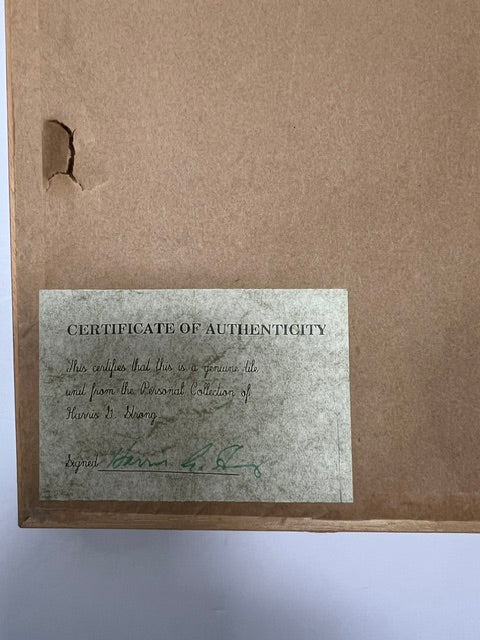 CERTIFICATE OF AUTHENTICITY
This certifies that this is a genuine tile
unit from the Personal Collection of
Harris G. Strong
Signed Harris G. Strong